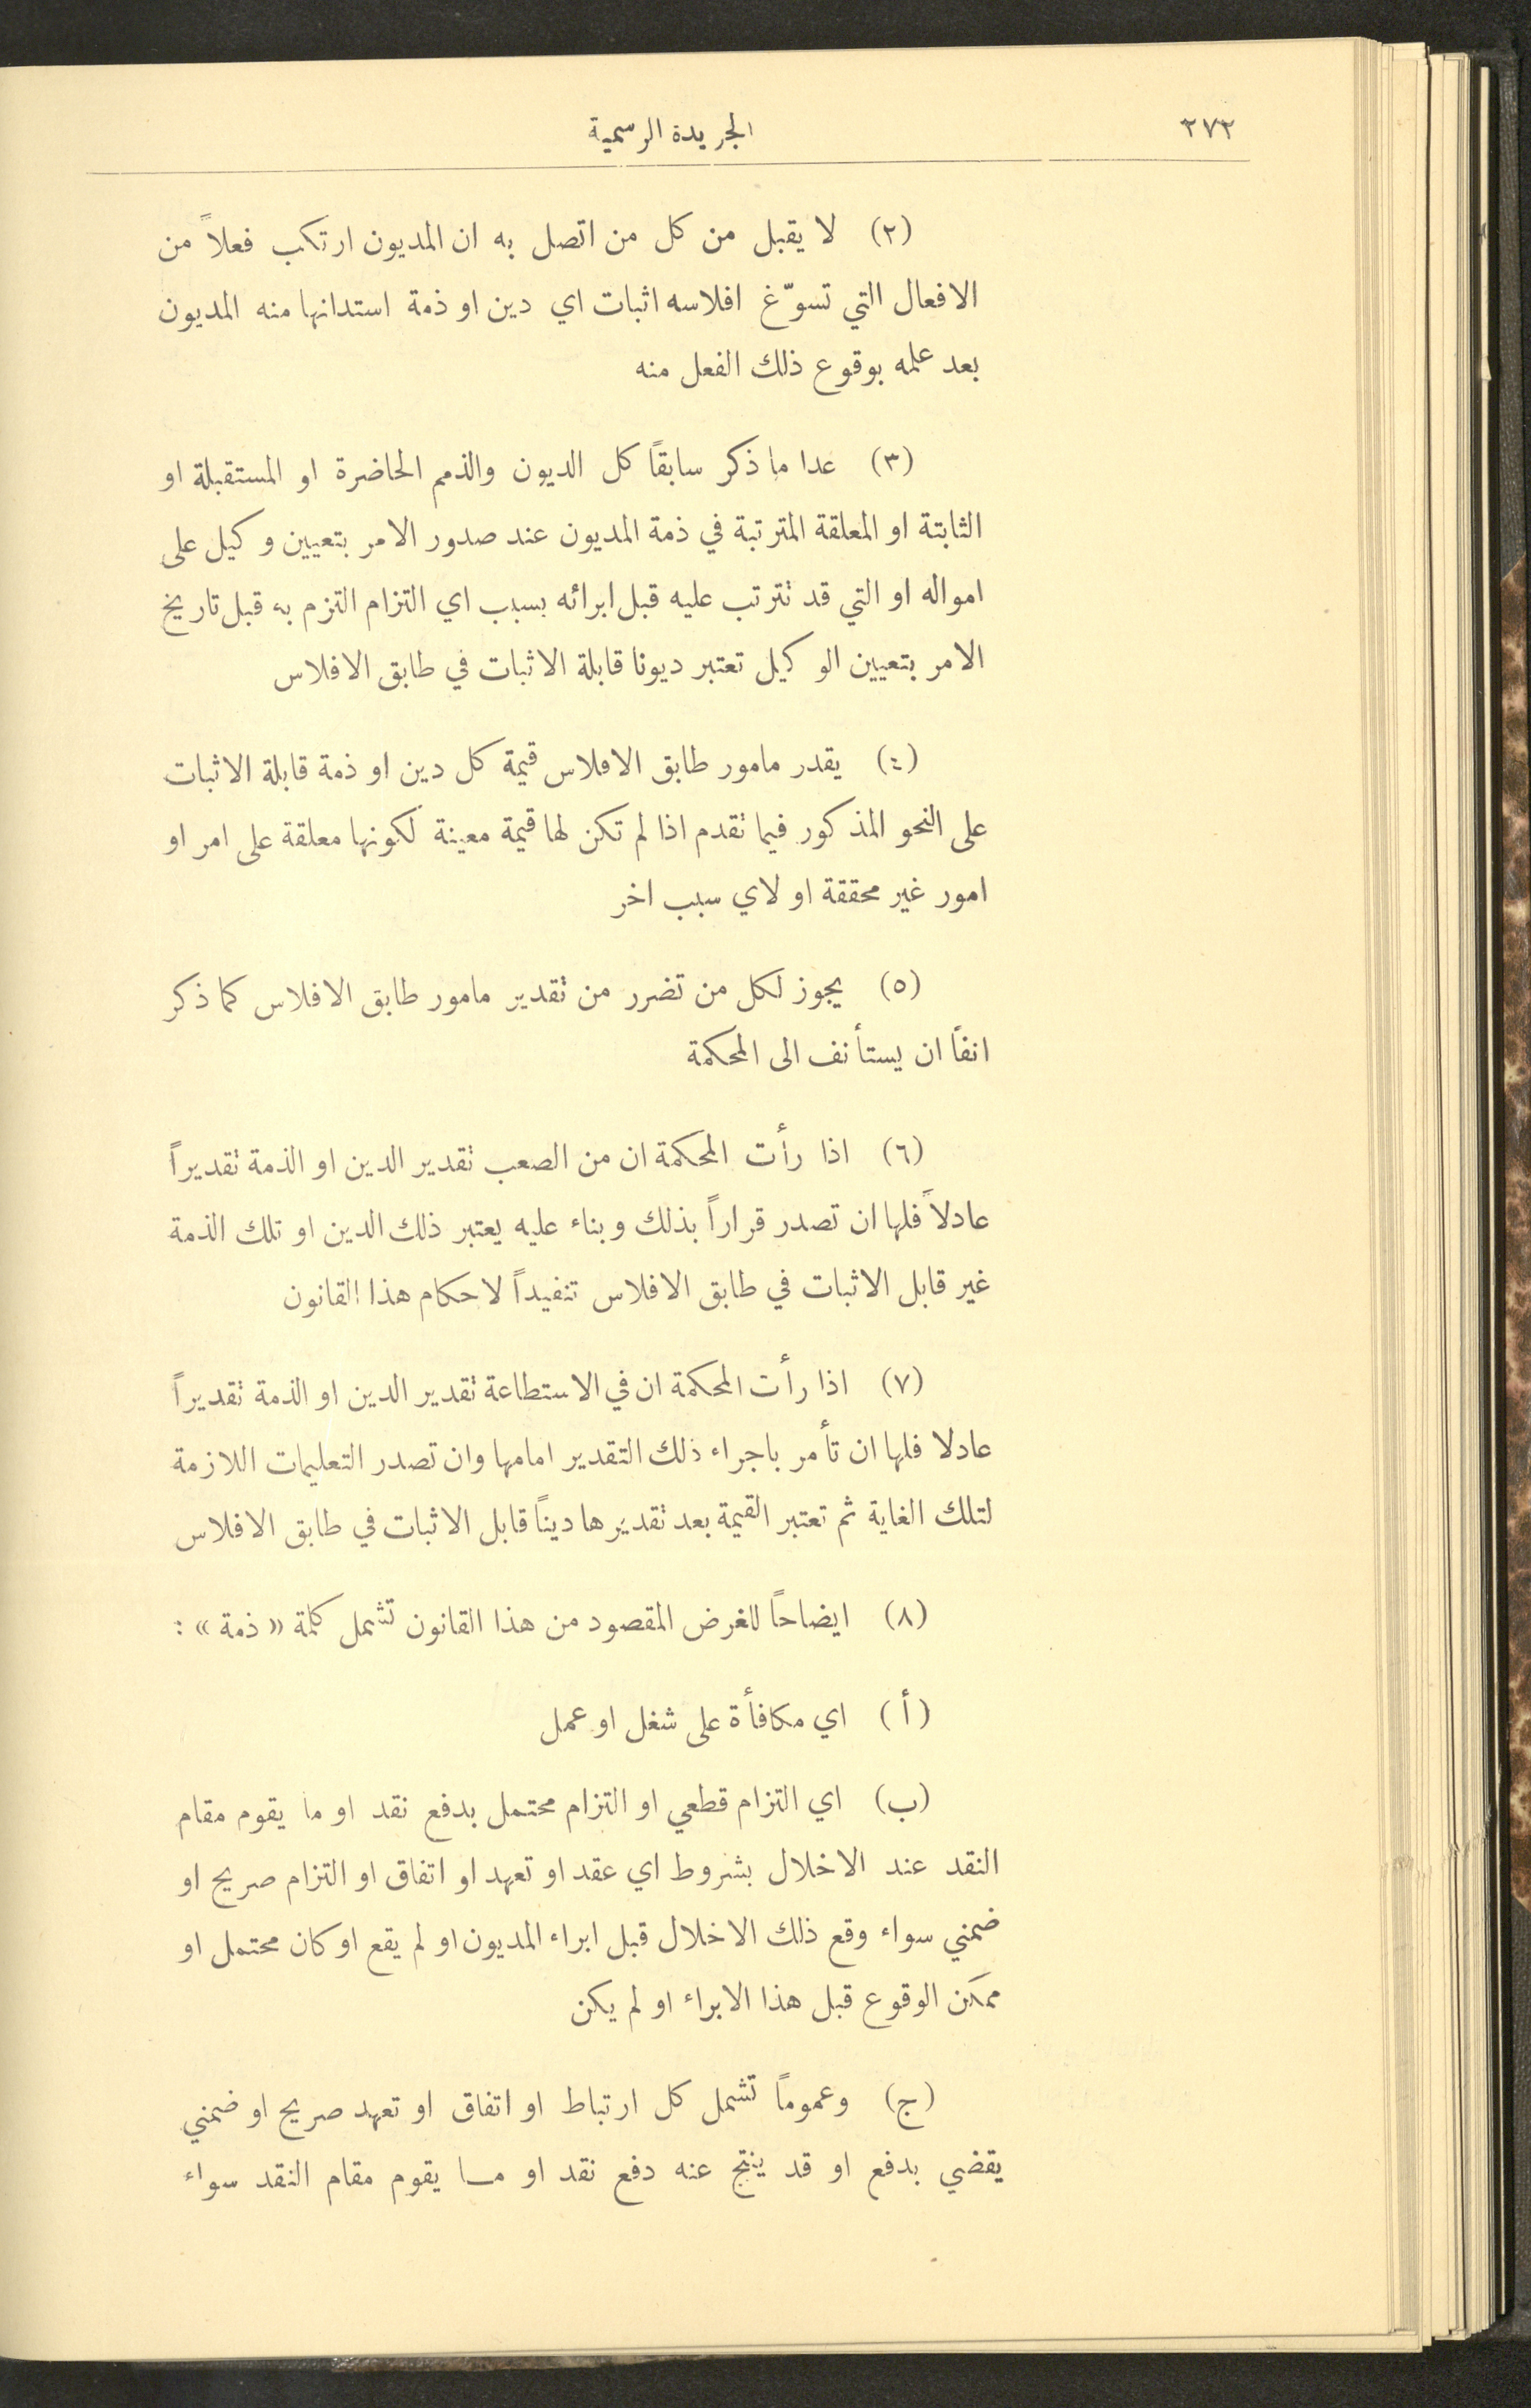 ٢٧٢
الجريدة الرسمية
(٢) لا يقبل من كل من اتصل به ان المديون ارتكب فعلاً من
الافعال التي تسوّغ افلاسه اثبات اي دين او ذمة استدانها منه المديون
بعد علمه بوقوع ذلك الفعل منه
(٣) عدا ما ذكر سابقاً كل الديون والذمم الحاضرة او المستقبلة او
الثابتة او المعلقة المترتبة في ذمة المديون عند صدور الامر بتعيين وكيل على
امواله او التي قد تترتب عليه قبل ابرائه بسبب اي التزام التزم به قبل تاريخ
الامر بتعيين الوكيل تعتبر ديونا قابلة الاثبات في طابق الافلاس
(٤) يقدر مامور طابق الافلاس قيمة كل دين او ذمة قابلة الاثبات
على النحو المذكور فيما تقدم اذا لم تكن لها قيمة معينة لكونها معلقة على امر او
امور غير محققة او لاي سبب اخر
(٥) يجوز لكل من تضرر من تقدير مامور طابق الافلاس كما ذكر
انفاً ان يستأنف الى المحكمة
(٦) اذا رأت المحكمة ان من الصعب تقدير الدين او الذمة تقديراً
عادلاً فلها ان تصدر قراراً بذلك وبناء عليه يعتبر ذلك الدين او تلك الذمة
غير قابل الاثبات في طابق الافلاس تنفيداً لاحكام هذا القانون
(٧) اذا رأت المحكمة ان في الاستطاعة تقدير الدين او الذمة تقديراً
عادلا فلها ان تأمر باجراء ذلك التقدير امامها وان تصدر التعليمات اللازمة
لتلك الغاية ثم تعتبر القيمة بعد تقديرها ديناً قابل الاثبات في طابق الافلاس
(٨) ايضاحاً للغرض المقصود من هذا القانون تشمل كلمة «ذمة» :
(أ) اي مكافأة على شغل او عمل
(ب) اي التزام قطعي او التزام محتمل بدفع نقد او ما يقوم مقام
النقد عند الاخلال بشروط اي عقد او تعهد او اتفاق او التزام صريح او
ضمني سواء وقع ذلك الاخلال قبل ابراء المديون او لم يقع او كان محتمل او
ممكن الوقوع قبل هذا الابراء او لم يكن
(ج) وعموماً تشمل كل ارتباط او اتفاق او تعهد صريح او ضمني
يقضي بدفع او قد ينتج عنه دفع نقد او ما يقوم مقام النقد سواء